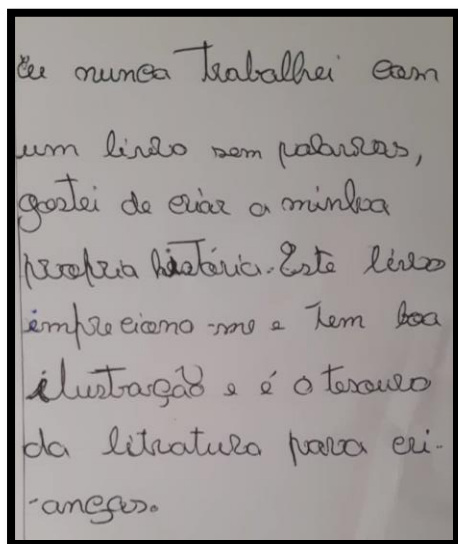 Eu nunca trabalhei com
um livro sem palavras,
gostei de criar a minha
propria história. Este livro
impreciono-me e tem boa
ilustração e é o tesouro
da litratura para cri-
-anças.